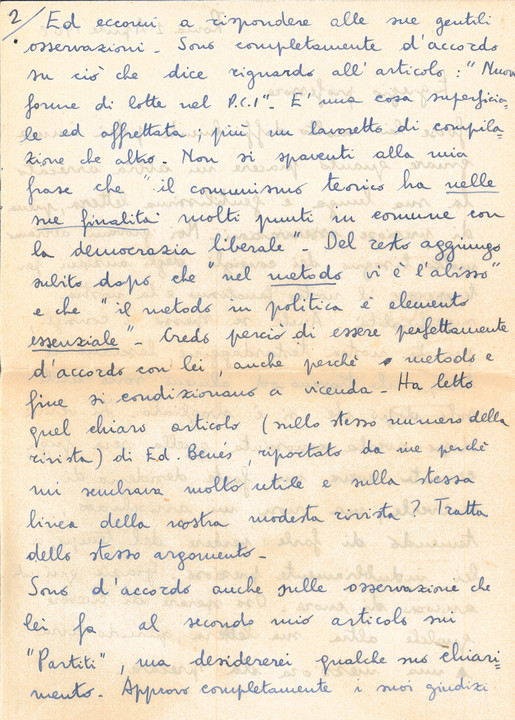 2/ Ed eccomi a rispondere alle sue gentili
osservazioni - Sono completamente d'accordo
su ciò che dice riguardo all'articolo: "Nuove
forme di lotte nel P.C.I" - E' una cosa superficia=
le ed affrettata; più un lavoretto di compila=
zione che altro - Non si spaventi alla mia
frase che "il comunismo teorico ha nelle
sue finalità molti punti in comune con
la democrazia liberale" - Del resto aggiungo
subito dopo che "nel metodo vi è l'abisso"
e che "il metodo in politica è elemento
essenziale" - Credo perciò di essere perfettamente
d'accordo con lei, anche perchè metodo e
fine si condizionano a vicenda - Ha letto
quel chiaro articolo (sullo stesso numero della
rivista) di Ed. Benés riportato da me perchè
mi sembrava molto utile e sulla stessa
linea della nostra modesta rivista? Tratta
dello stesso argomento -
Sono d'accordo anche sulle osservazione che
lei fa al secondo mio articolo sui
"Partiti", ma desidererei qualche suo chiari=
mento - Approvo completamente i suoi giudizi